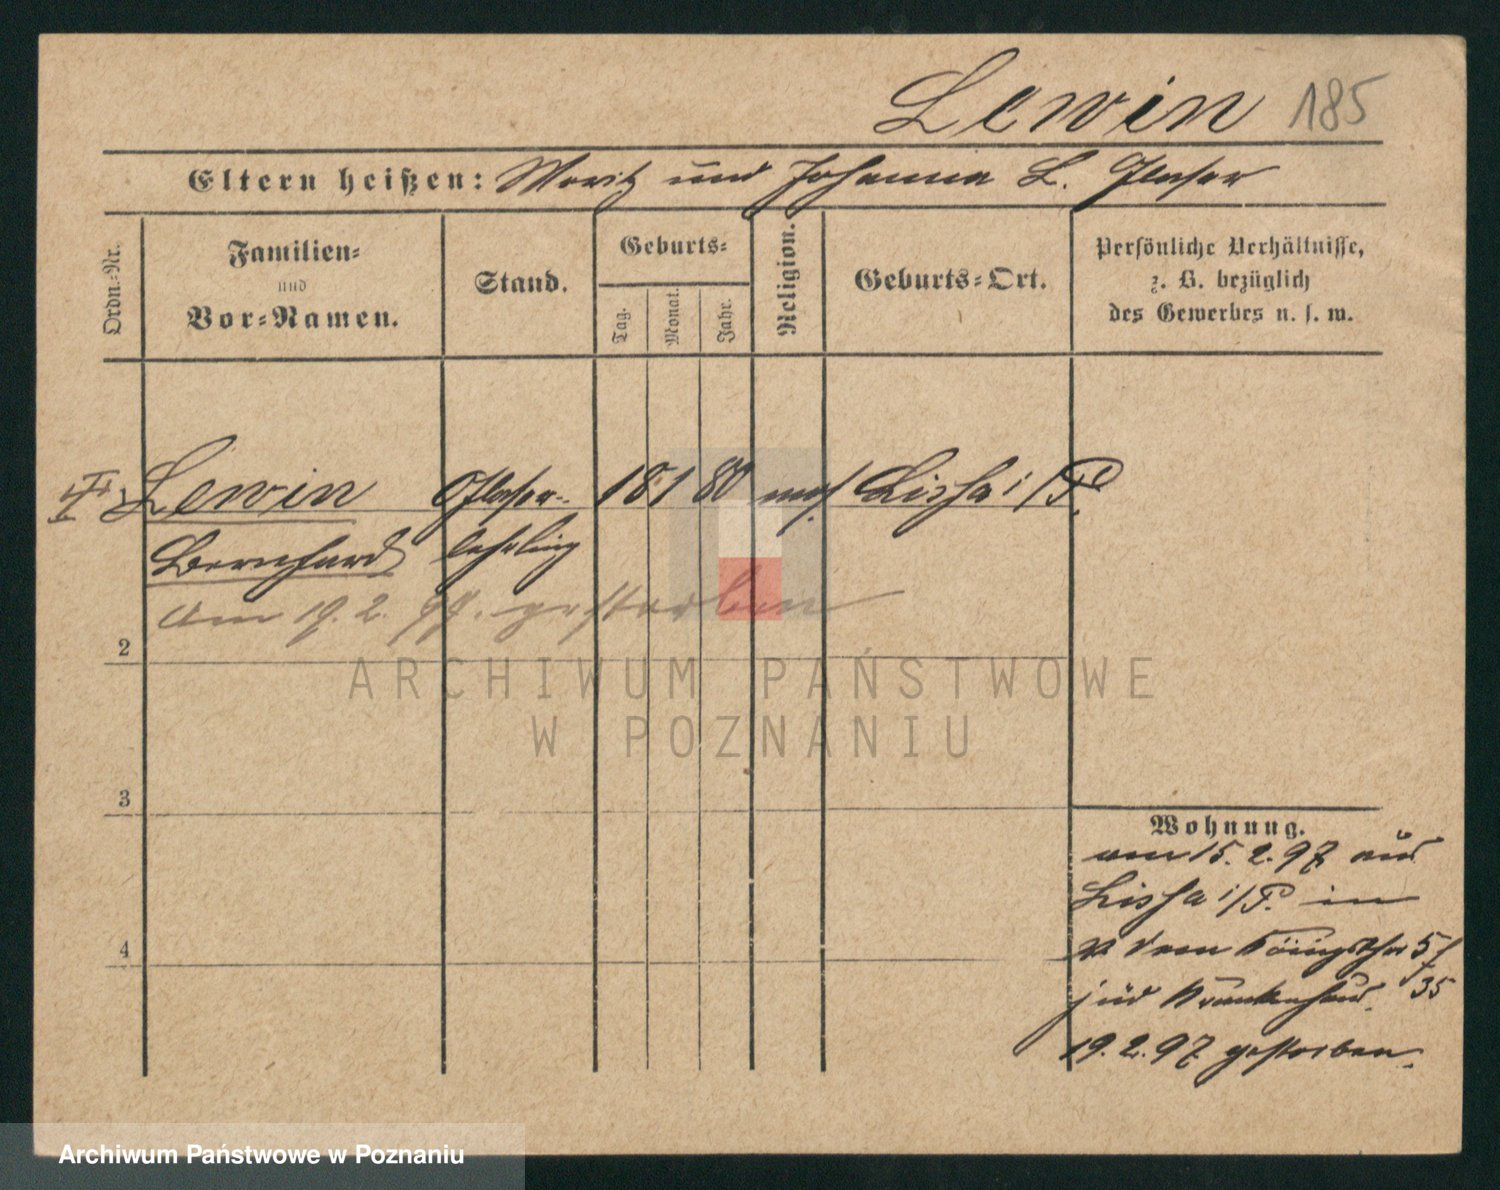 Lewin 185
Eltern heißen: Moritz und Johanna L. Glaser
Ordn.-Nr.
Familien-
und
Vor-Namen.
Stand.
Geburts-
Tag.
Monat.
Jahr.
Religion.
Geburts-Ort.
Persönliche Verhältnisse,
z. B. bezüglich
des Gewerbes u. s. w.
Lewin Glaser- 18 1 80 mos Lissa i/P.
Bernhard lehrling
Am 19. 2. 97. gestorben
2
3
4
Wohnung.
am 15. 2. 97 aus
Lissa i/P. in
vor dem Königsthor 5/
jüd Krankenhaus. 35
19. 2. 97 gestorben.
ARCHIWUM PAŃSTWOWE
W POZNANIU
Archiwum Państwowe w Poznaniu